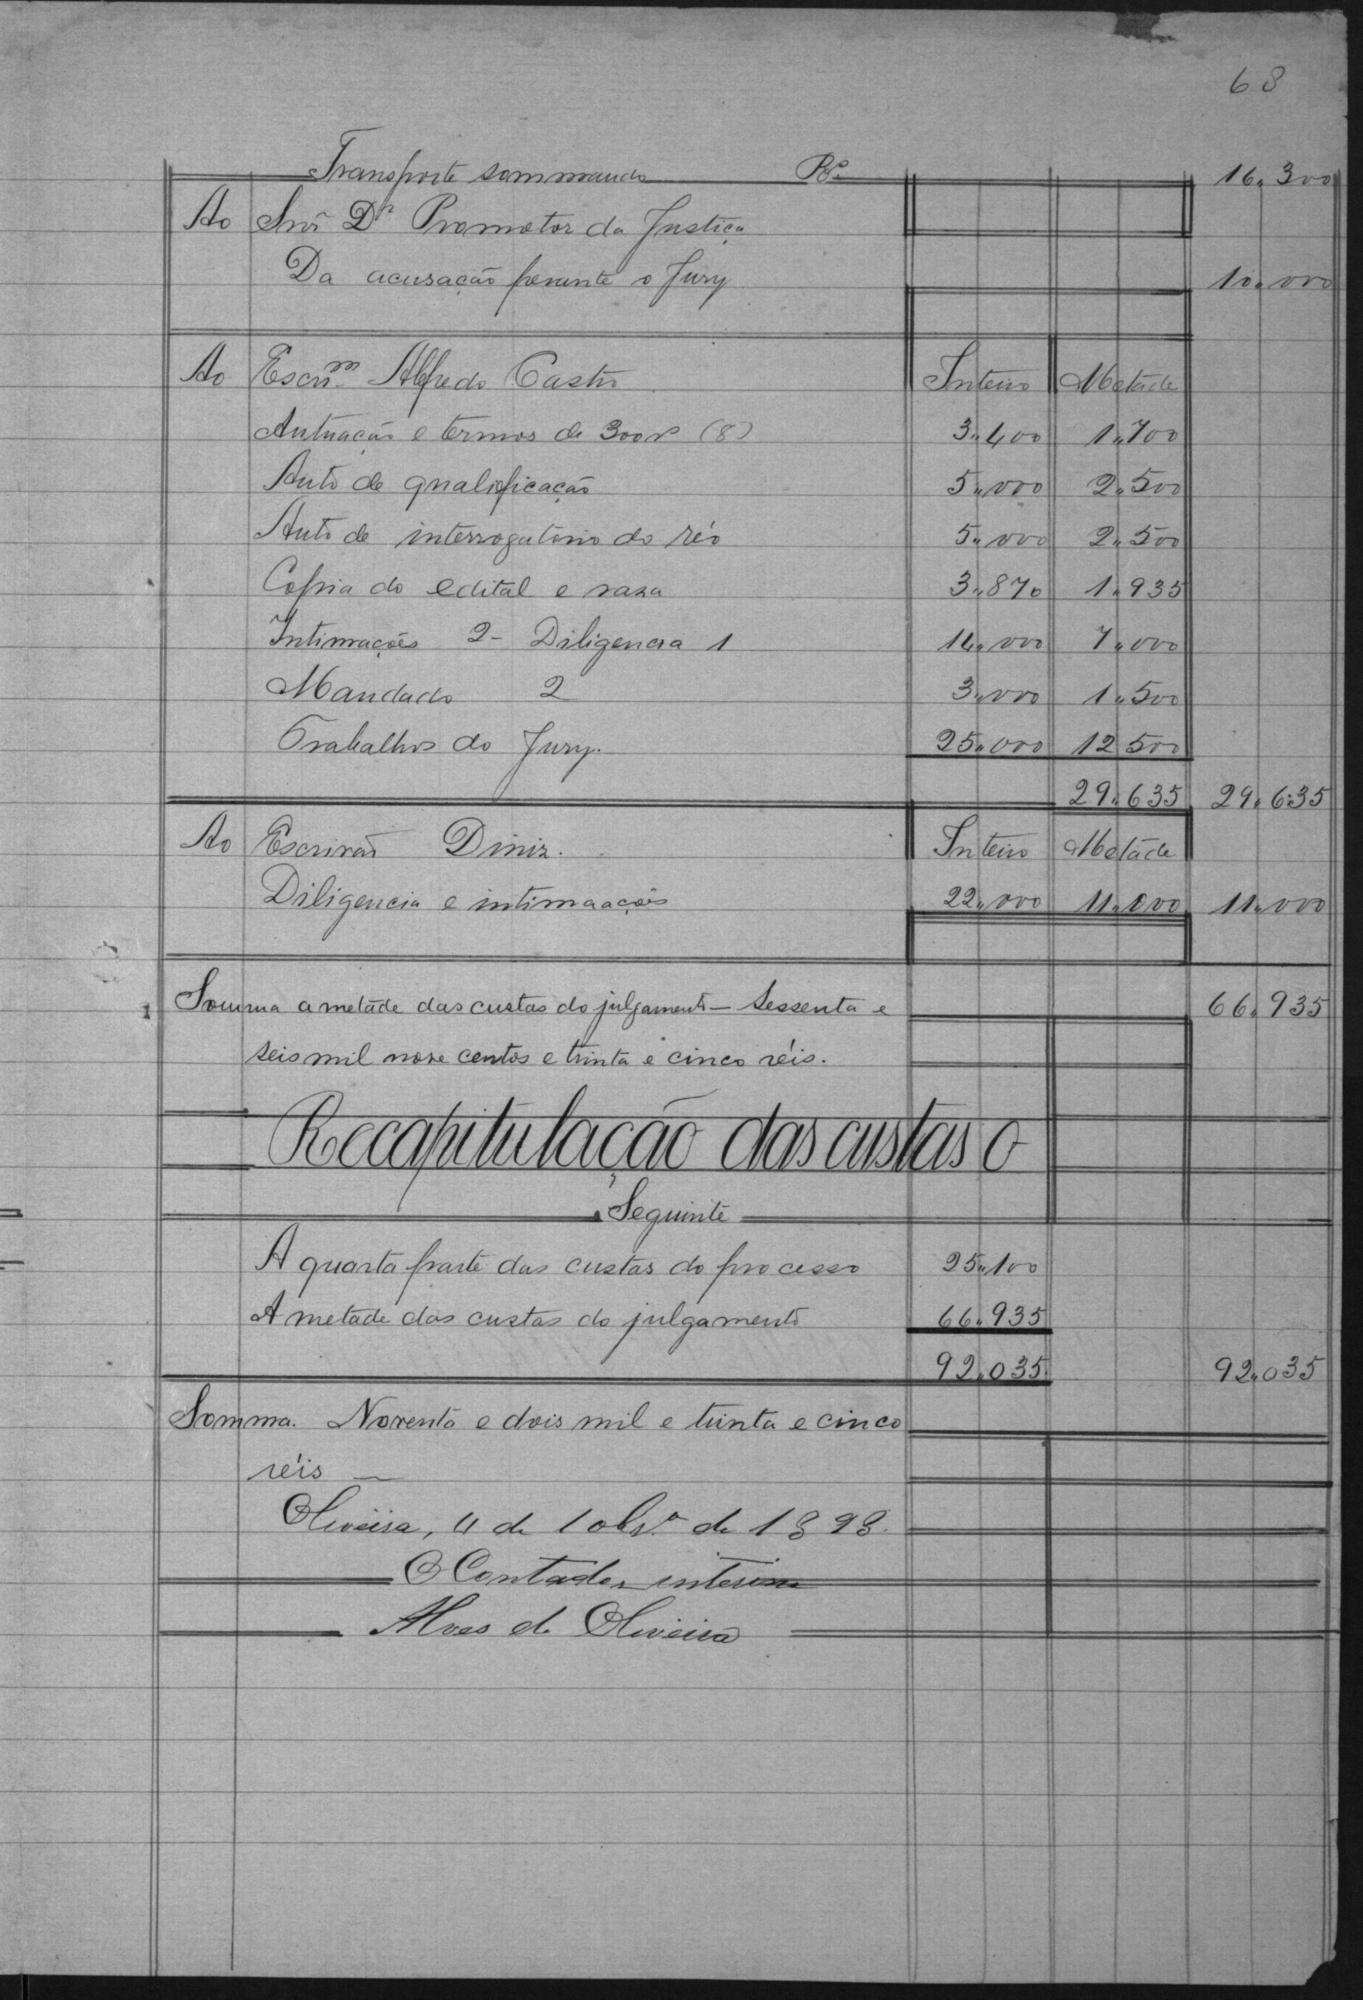 68
Transporte sommando Rs. 16.300
Ao Snr. Dr. Promotor da Justiça
Da acusação perante o Jury 10.000
Ao Escrm. Alfredo Castro Inteiro Metade
Autuação e termos de 300rs (8) 3.400 1.700
Auto de qualificação 5.000 2.500
Auto de interrogatorio do réo 5.000 2.500
Copia do edital e rasa 3.870 1.935
Intimações 2- Diligencia 1 14.000 7.000
Mandado 2 3.000 1.500
Trabalhos do Jury. 25.000 12500
29.635 29.635
Ao Escrivão Diniz. Inteiro Metade
Diligencia e intimaações 22.000 11.000 11.000
Somma a metade das custas do julgamento — Sessenta e 66.935
seis mil nove centos e trinta e cinco réis.
Recapitulação das custas o
Seguinte
A quarta parte das custas do processo 25.100
A metade das custas do julgamento 66.935
92.035. 92.035
Somma. Noventa e dois mil e trinta e cinco
réis —
Oliveira, 4 de 10br.o de 1898.
O Contador interino
Alves de Oliveira